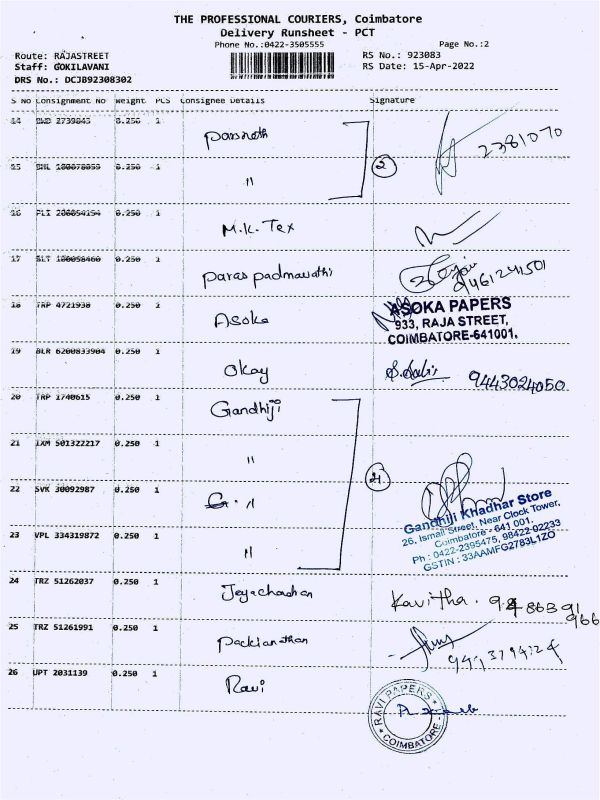 THE PROFESSIONAL COURIERS, Coimbatore
Delivery Runsheet - PCT
Phone No.:0422-3505555 Page No.:2
Route: RAJASTREET RS No.: 923083
Staff: GOKILAVANI RS Date: 15-Apr-2022
DRS No.: DCJB92308302
S No Consignment No Weight PCS Consignee Details Signature
14 2739845 0.250 1 parsnath 2381070
15 0.250 1 " 2
16 0.250 1 M.K. Tex
17 0.250 1 paras padmavathi
18 TRP 4721930 0.250 1 Asoka ASOKA PAPERS
933, RAJA STREET,
COIMBATORE-641001.
19 BLR 6200833904 0.250 1 Okay 9443024050
20 TRP 1740615 0.250 1 Gandhiji
21 IXM 501322217 0.250 1 "
22 SVK 30092987 0.250 1 G. " 4
Gandhiji Khadhar Store
26, Ismail Street, Near Clock Tower,
Coimbatore - 641 001.
Ph : 0422-2395475, 98422 02233
GSTIN : 33AAMFG2783L1ZO
23 VPL 334319872 0.250 1 "
24 TRZ 51262037 0.250 1 Kavitha.
25 TRZ 51261991 0.250 1 packianathan
26 UPT 2031139 0.250 1 Ravi
RAVI PAPERS
COIMBATORE